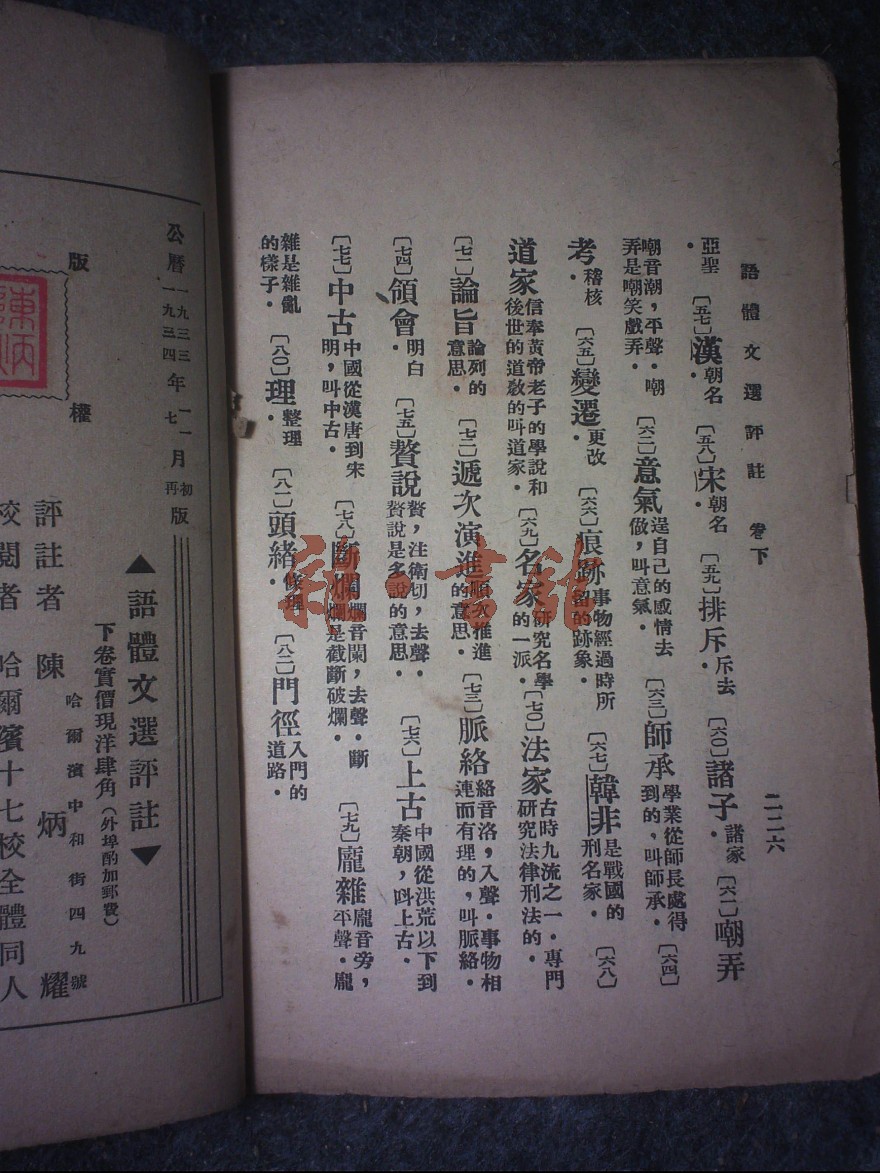 語體文選評註 卷下 二二六
亞聖・〔五七〕漢朝名・〔五八〕宋朝名・〔五九〕排斥斥去・〔六〇〕諸子諸家・〔六一〕嘲弄
嘲音潮，平聲・嘲弄是嘲笑戲弄・〔六二〕意氣逞自己的感情去做，叫意氣・〔六三〕師承學業從師長處得到的，叫師承・〔六四〕
考稽核・〔六五〕變遷更改・〔六六〕痕跡事物經過時所留的跡象・〔六七〕韓非是戰國的刑名家・〔六八〕
道家信奉黃帝老子的學說和後世的道教的叫道家・〔六九〕名家研究名學的一派・〔七〇〕法家古時九流之一・專門研究法律刑法的・
〔七一〕論旨論列的意思・〔七二〕遞次演進順次推進的意思・〔七三〕脈絡絡音洛，入聲・事物相連而有理的，叫脈絡・
〔七四〕領會明白・〔七五〕贅說贅，注衛切，去聲・贅說是多說的意思・〔七六〕上古中國從洪荒以下到秦朝，叫上古・
〔七七〕中古中國從漢唐到宋明，叫中古・〔七八〕斷爛爛音闌，去聲・斷爛是截斷破爛・〔七九〕龐雜龐音旁，平聲・龐
雜是雜亂的樣子・〔八〇〕理整理・〔八一〕頭緒條理・〔八二〕門徑入門的道路・
版權
陳炳
公曆一九三三年一一月初版
一九三四年七月再版
▲語體文選評註▼
下卷實價現洋肆角（外埠酌加郵費）
哈爾濱中和街四九號
評註者 陳炳耀
校閱者 哈爾濱十七校全體同人